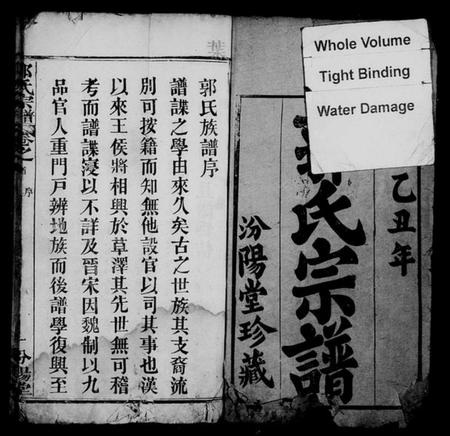 Whole Volume
Tight Binding
Water Damage
乙丑年
氏宗譜
汾陽堂珍藏
葉
郭氏族譜序
譜諜之學由來久矣古之世族其支裔流
別可按籍而知無他設官以司其事也漢
以來王侯將相興於草澤其先世無可稽
考而譜諜寖以不詳及晉宋因魏制以九
品官人重門戸辨地族而後譜學復興至
氏宗譜卷之首
序